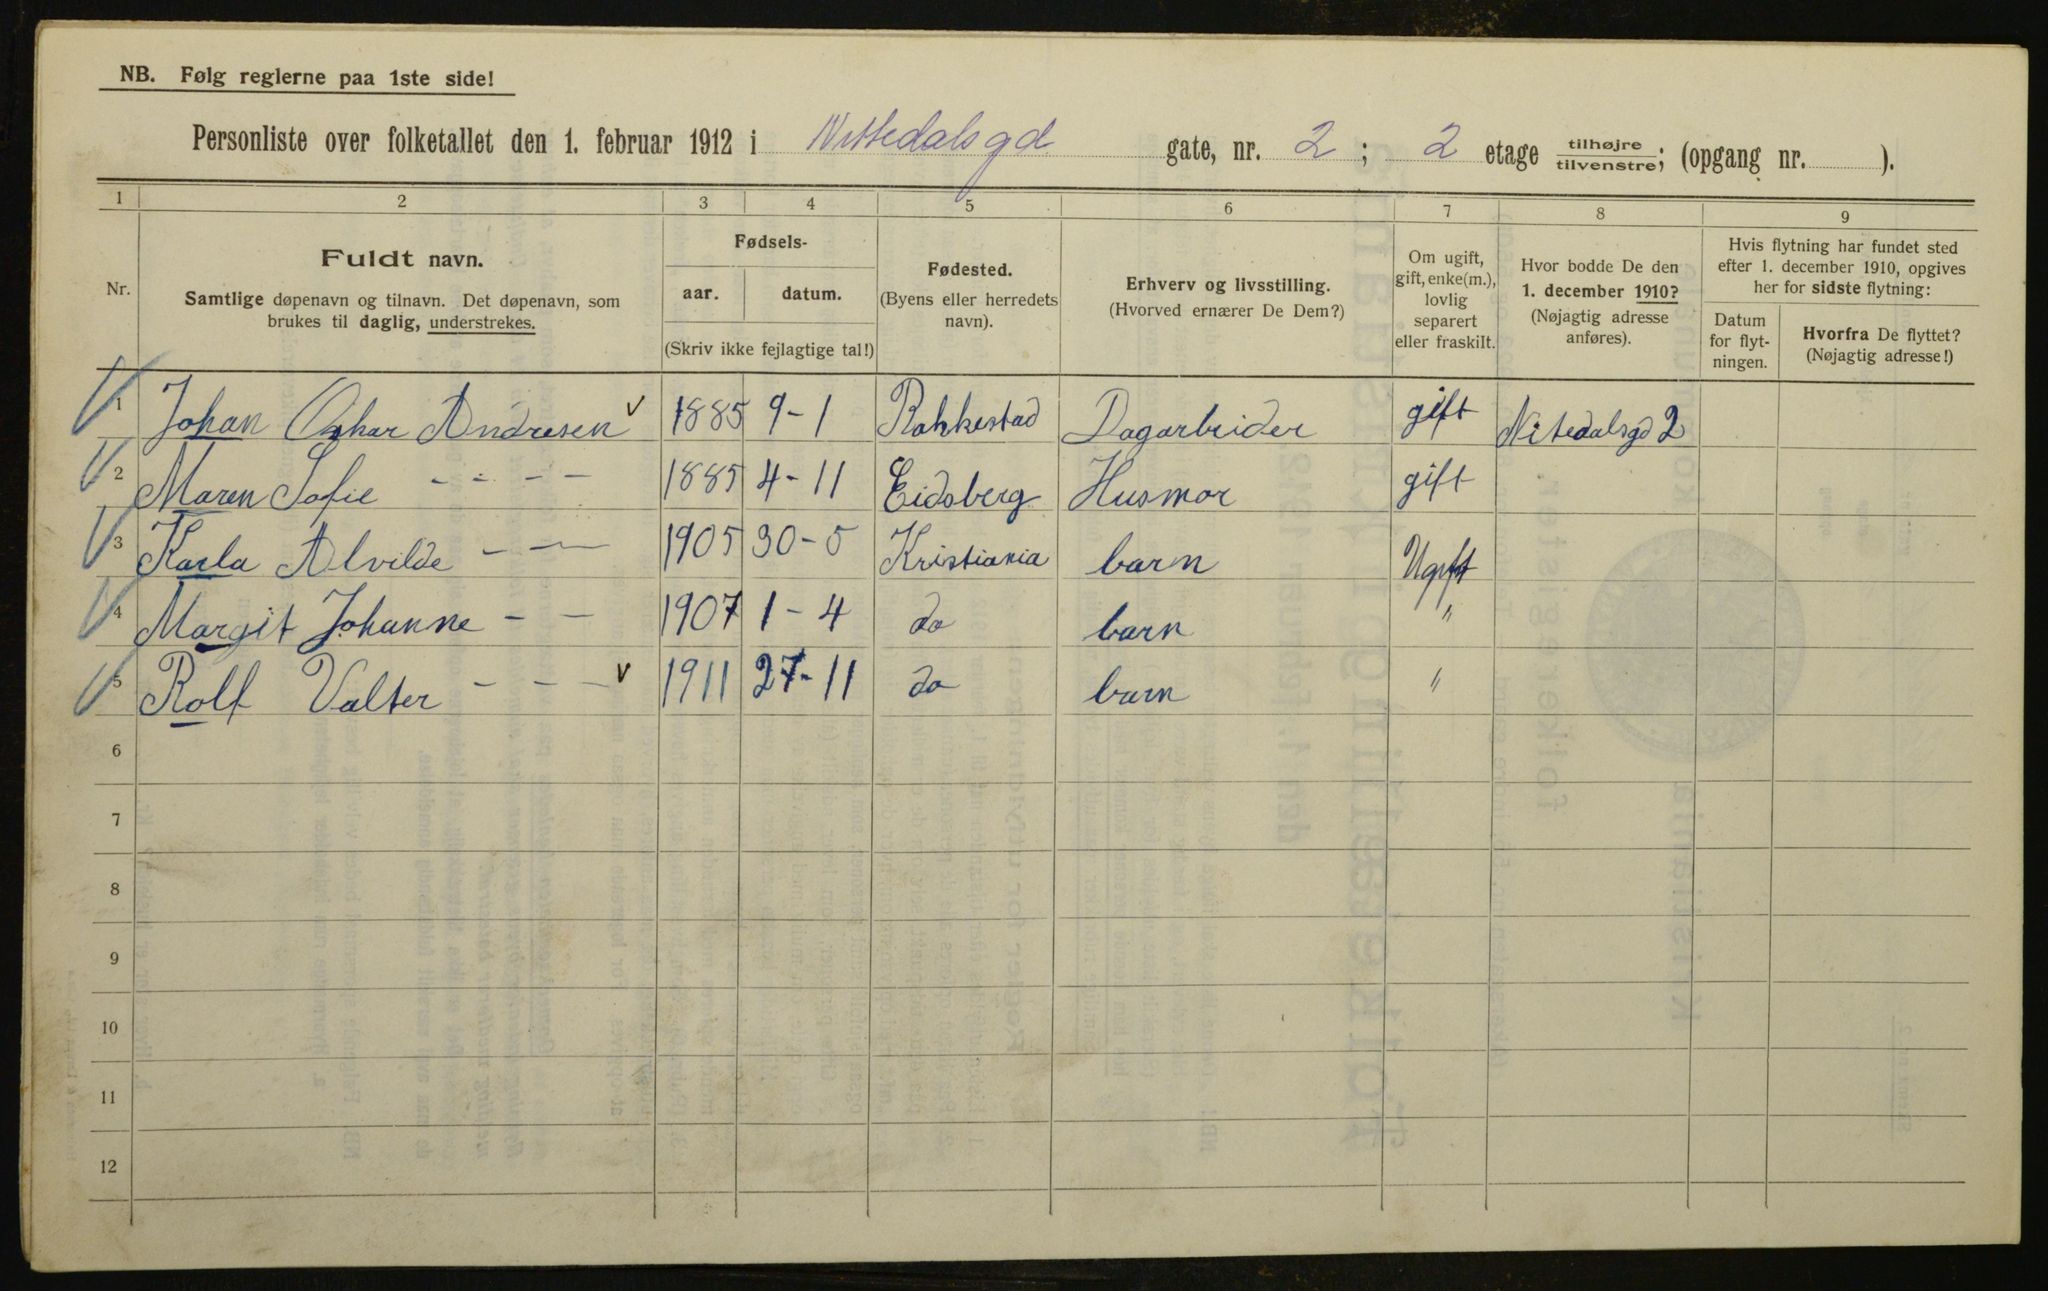 NB. Følg reglerne paa 1ste side!
Personliste over folketallet den 1. februar 1912 i Nittedalsgd gate, nr. 2; 2 etage tilhøjre tilvenstre; (opgang nr. ).
1 2 3 4 5 6 7 8 9
Nr.
Fuldt navn.
Samtlige døpenavn og tilnavn. Det døpenavn, som
brukes til daglig, understrekes.
Fødsels-
aar. datum.
(Skriv ikke fejlagtige tal!)
Fødested.
(Byens eller herredets
navn).
Erhverv og livsstilling.
(Hvorved ernærer De Dem?)
Om ugift,
gift, enke(m.),
lovlig
separert
eller fraskilt.
Hvor bodde De den
1. december 1910?
(Nøjagtig adresse
anføres).
Hvis flytning har fundet sted
efter 1. december 1910, opgives
her for sidste flytning:
Datum
for flyt-
ningen.
Hvorfra De flyttet?
(Nøjagtig adresse!)
1 Johan Oskar Andresen v 1885 9-1 Rakkestad Dagarbeider gift Nitedalsgd 2
2 Maren Sofie - - - - 1885 4-11 Eidsberg Husmor gift
3 Karla Alvilde - - - 1905 30-5 Kristiania barn Ugift
4 Margit Johanne - - 1907 1-4 do barn "
5 Rolf Valter - - - v 1911 27-11 do barn "
6
7
8
9
10
11
12